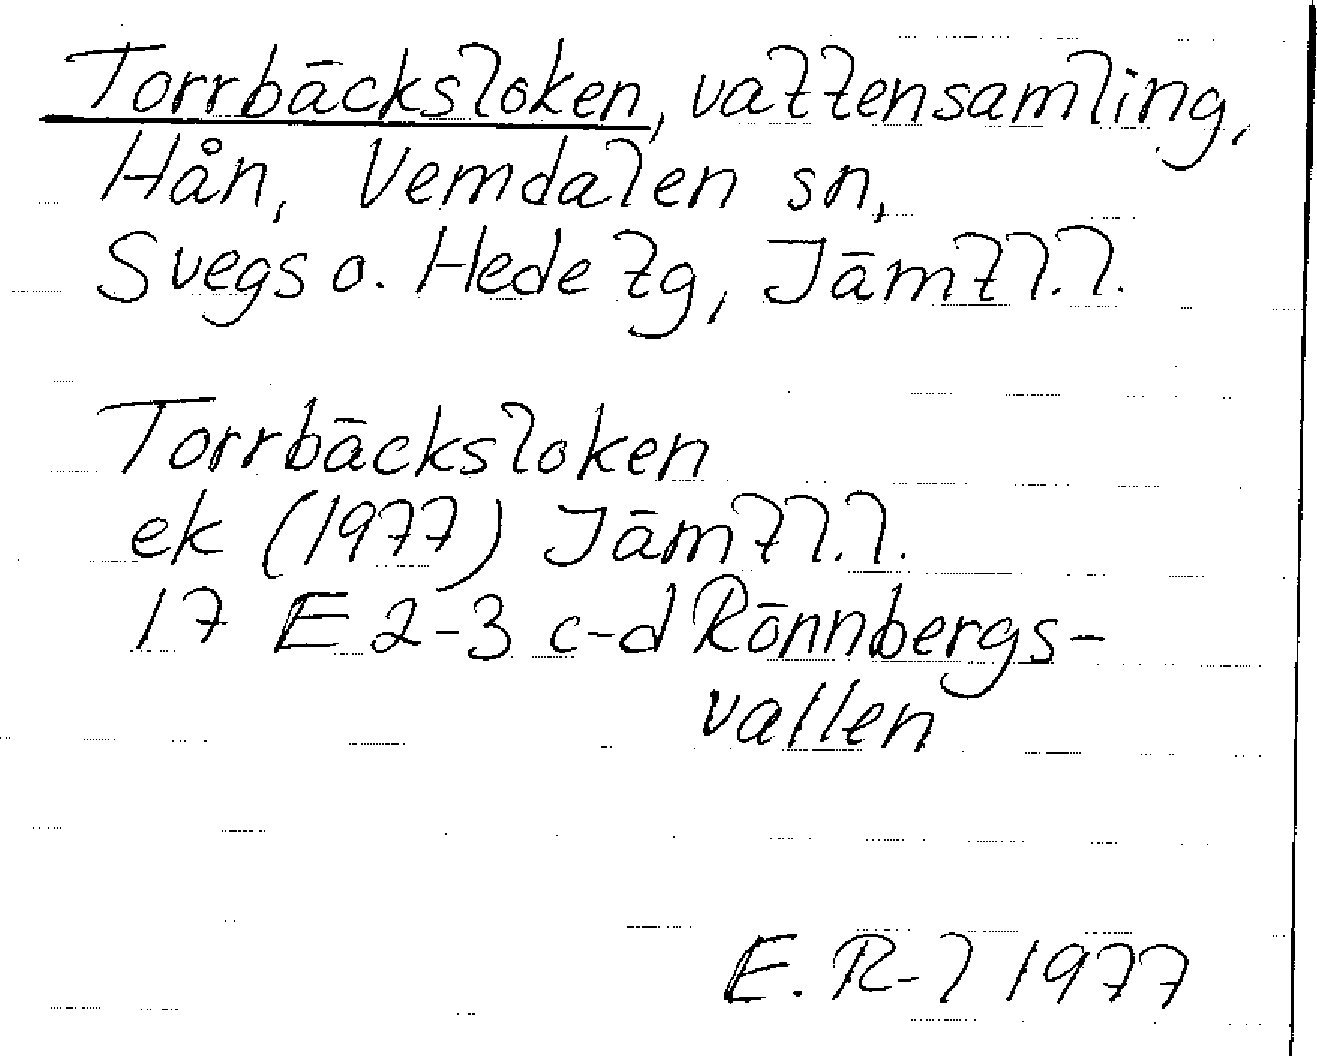 Torrbäcksloken, vattensamling,
Hån, Vemdalen sn,
Svegs o. Hede tg, Jämtl.l.
Torrbäcksloken
ek (1977) Jämtl.l.
17 E 2-3 c-d Rönnbergs-
vallen
E. R-l 1977